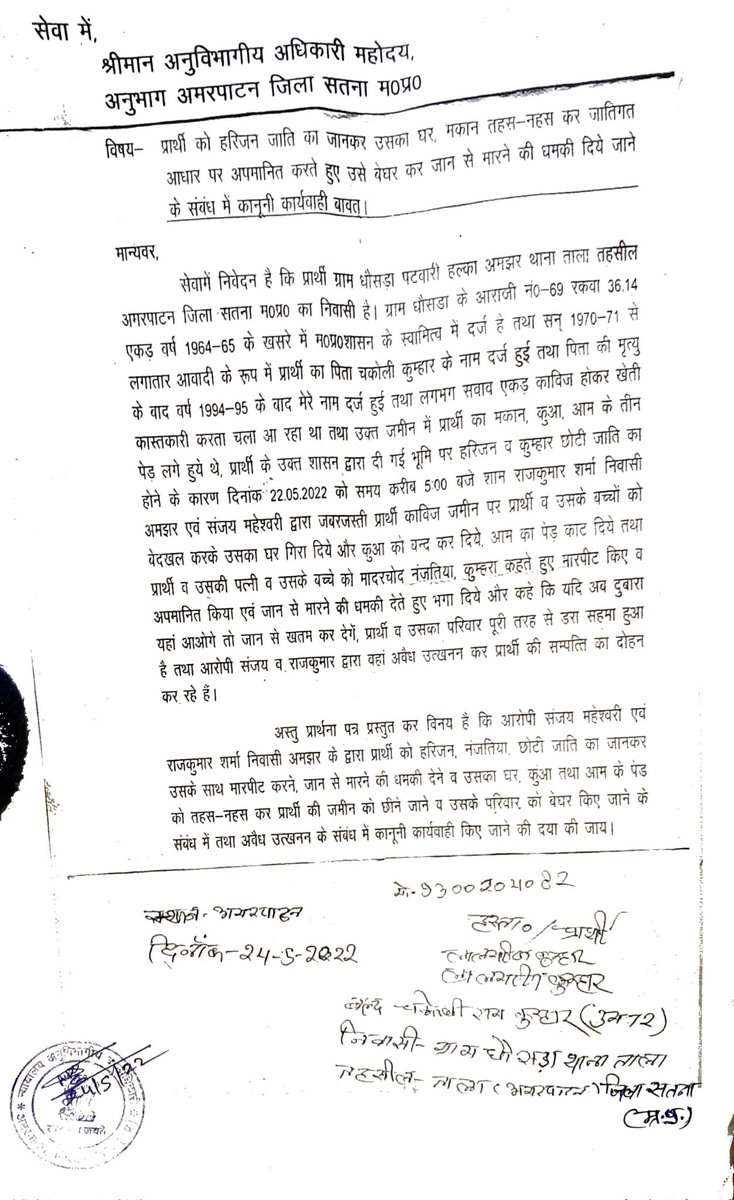 सेवा में,
श्रीमान अनुविभागीय अधिकारी महोदय,
अनुभाग अमरपाटन जिला सतना म0प्र0
विषय– प्रार्थी को हरिजन जाति का जानकर उसका घर, मकान तहस–नहस कर जातिगत
आधार पर अपमानित करते हुए उसे बेघर कर जान से मारने की धमकी दिये जाने
के संबंध में कानूनी कार्यवाही बावत।
मान्यवर,
सेवामें निवेदन है कि प्रार्थी ग्राम धौसड़ा पटवारी हल्का अमझर थाना ताला तहसील
अमरपाटन जिला सतना म0प्र0 का निवासी है। ग्राम धौसडा के आराजी नं0–69 रकवा 36.14
एकड़ वर्ष 1964–65 के खसरे में म0प्र0शासन के स्वामित्व में दर्ज है तथा सन् 1970–71 से
लगातार आवादी के रूप में प्रार्थी का पिता चकोली कुम्हार के नाम दर्ज हुई तथा पिता की मृत्यु
के वाद वर्ष 1994–95 के वाद मेरे नाम दर्ज हुई तथा लगभग सवाव एकड़ काविज होकर खेती
कास्तकारी करता चला आ रहा था तथा उक्त जमीन में प्रार्थी का मकान, कुआ, आम के तीन
पेड़ लगे हुये थे, प्रार्थी के उक्त शासन द्वारा दी गई भूमि पर हरिजन व कुम्हार छोटी जाति का
होने के कारण दिनांक 22.05.2022 को समय करीव 5:00 वजे शाम राजकुमार शर्मा निवासी
अमझर एवं संजय महेश्वरी द्वारा जवरजस्ती प्रार्थी काविज जमीन पर प्रार्थी व उसके बच्चों को
वेदखल करके उसका घर गिरा दिये और कुआ को वन्द कर दिये, आम का पेड़ काट दिये तथा
प्रार्थी व उसकी पत्नी व उसके बच्चे को मादरचोद नंजतिया, कुम्हरा कहते हुए मारपीट किए व
अपमानित किया एवं जान से मारने की धमकी देते हुए भगा दिये और कहे कि यदि अव दुबारा
यहां आओगे तो जान से खतम कर देगें, प्रार्थी व उसका परिवार पूरी तरह से डरा सहमा हुआ
है तथा आरोपी संजय व राजकुमार द्वारा वहां अवैध उत्खनन कर प्रार्थी की सम्पत्ति का दोहन
कर रहे हैं।
अस्तु प्रार्थना पत्र प्रस्तुत कर विनय है कि आरोपी संजय महेश्वरी एवं
राजकुमार शर्मा निवासी अमझर के द्वारा प्रार्थी को हरिजन, नंजतिया, छोटी जाति का जानकर
उसके साथ मारपीट करने, जान से मारने की धमकी देने व उसका घर, कुंआ तथा आम के पेड
को तहस–नहस कर प्रार्थी की जमीन को छीने जाने व उसके परिवार को बेघर किए जाने के
संबंध में तथा अवैध उत्खनन के संबंध में कानूनी कार्यवाही किए जाने की दया की जाय।
मो-9300204082
स्थान- अमरपाटन
दिनाँक-24-5-2022
हस्ता० / प्रार्थी
कुम्हार
कुम्हार
राम कुम्हार (उम्र 72)
निवासी- ग्राम धौसड़ा थाना ताला
तहसील- ताला (अमरपाटन) जिला सतना
(म.प्र.)
न्यायालय अनुविभागीय
24/5/22